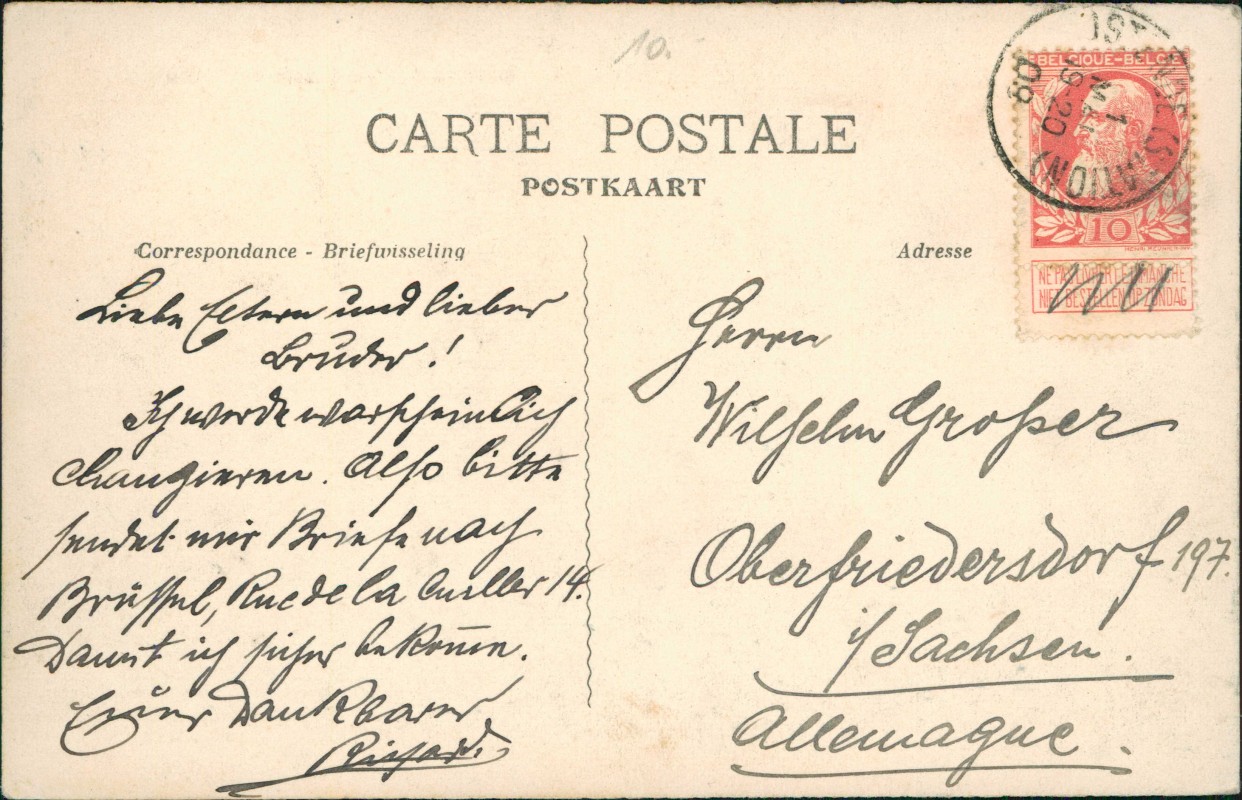 10.
CARTE POSTALE
POSTKAART
Correspondance - Briefwisseling
Liebe Eltern und lieber
Bruder!
Ich werde warscheinlich
changieren. Also bitte
sendet mir Briefe nach
Brüssel, Rue de la Cuiller 14.
Damit ich sicher bekom̄e.
Euer Dankbarer
Richard.
Adresse
Herrn
Wilhelm Großer
Oberfriedersdorf 197.
i/Sachsen.
Allemagne.
BELGIQUE-BELGIE
10
NE PAS LIVRER LE DIMANCHE
NIET BESTELLEN OP ZONDAG
(STATION)
1
19-20
09